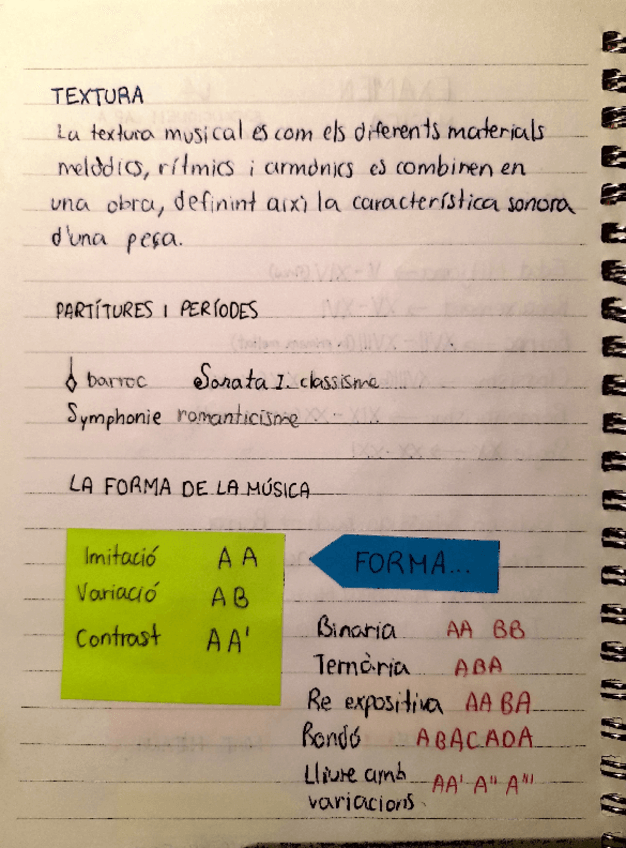 TEXTURA
La textura musical és com els diferents materials
melòdics, rítmics i armònics es combinen en
una obra, definint així la característica sonora
d'una peça.
PARTÍTURES I PERÍODES
barroc Sonata I. classisme
Symphonie romanticisme
LA FORMA DE LA MÚSICA
Imitació A A
Variació A B
Contrast A A'
FORMA...
Binaria AA BB
Ternària ABA
Re expositiva AA BA
Rondó ABACADA
Lliure amb AA' A'' A'''
variacions